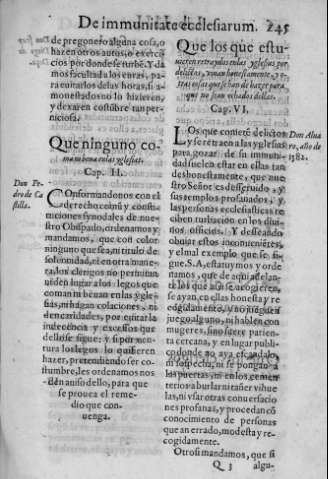 De immunitate ecclesiarum. 245
de pregonero alguna cosa, o
hazen otros autos, o exerci-
cios por donde se turbe. Y da
mos facultad a los curas, pa-
ra euitarlos de las horas, si a-
monestados no lo hizieren,
y dexaren costūbre tan per-
niciosa.
Que ninguno co-
ma ni beua en las yglesias.
Cap. II.
Don Pe-
dro de Ca
stilla.
COnformandonos con el
derecho comū y const-
tuciones synodales de nue-
stro Obispado, ordenamos y
mandamos, que con color
ninguno que sea, ni titulo de
solemnidad, ni en otra mane
ra, los clerigos no permitan
ni den lugar a los legos que
coman ni beuan en las ygle-
sias, ni hagan colaciones, ni
den caridades, por euitar la
indecencia y excessos que
dello se sigue: y si por ven-
tura los legos lo quisieren
hazer, pretendiendo ser co-
stumbre, les ordenamos nos
den auiso dello, para que
se prouea el reme-
dio que con-
uenga.
Que los que estu-
uieren retraydos en las yglesias por
delictos, viuan honestamente, y
cosas en las que se han de hazer para
que no sean echados dellas.
Cap. VI.
LOs que cometē delictos
y se retraen a las yglesias
para gozar de su immuni-
dad suelen estar en ellas tan
deshonestamente, que nue
stro Señor es deseruido, y
sus templos profanados, y
las personas ecclesiasticas re
ciben turbacion en los diui-
nos officios. Y desseando
obuiar estos inconuenientes,
y el mal exemplo que se si-
gue. S. A, estatuymos y orde
namos, que de aqui adelan-
te los que assi se acogieren,
se ayan en ellas honesta y re
cogidamente, y no jueguen
juego alguno, ni hablen con
mugeres, sino fuere parien-
ta cercana, y en lugar publi-
co donde no aya escandalo,
ni sospecha, ni se pongan a
las puertas, ni en los cemen
terios a burlar ni tañer vihue
las, ni vsar otras conuersacio
nes profanas, y procedan cō
conocimiento de personas
que an errado, modesta y re-
cogidamente.
Otrosi mandamos, que si
Don Alua
ro, año de
1582.
Q 3 algu-